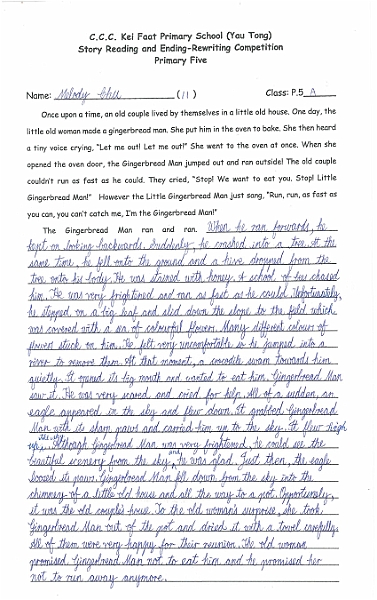 C.C.C. Kei Faat Primary School (Yau Tong)
Story Reading and Ending-Rewriting Competition
Primary Five
Name: Melody Chu (11) Class: P.5 A
Once upon a time, an old couple lived by themselves in a little old house. One day, the
little old woman made a gingerbread man. She put him in the oven to bake. She then heard
a tiny voice crying, "Let me out! Let me out!" She went to the oven at once. When she
opened the oven door, the Gingerbread Man jumped out and ran outside! The old couple
couldn't run as fast as he could. They cried, "Stop! We want to eat you. Stop! Little
Gingerbread Man!" However the Little Gingerbread Man just song, "Run, run, as fast as
you can, you can't catch me, I'm the Gingerbread Man!"
The Gingerbread Man ran and ran. When he ran forwards, he
kept on looking backwards. Suddenly, he crashed into a tree. At the
same time, he fell onto the ground and a hive dropped from the
tree onto his body. He was stained with honey. A school of bees chased
him. He was very frightened and ran as fast as he could. Unfortunately,
he stepped on a big leaf and slid down the slope to the field which
was covered with a sea of colourful flowers. Many different colours of
flowers stuck on him. He felt very uncomfortable so he jumped into a
river to remove them. At that moment, a crocodile swam towards him
quietly. It opened its big mouth and wanted to eat him. Gingerbread Man
saw it. He was very scared and cried for help. All of a sudden, an
eagle appeared in the sky and flew down. It grabbed Gingerbread
Man with its sharp paws and carried him up to the sky. It flew high
Although Gingerbread Man was very frightened, he could see the
beautiful scenery from the sky, and he was glad. Just then, the eagle
loosed its paws. Gingerbread Man fell down from the sky into the
chimney of a little old house and all the way to a pot. Opportunely,
it was the old couple's house. To the old woman's surprise, she took
Gingerbread Man out of the pot and dried it with a towel carefully.
All of them were very happy for their reunion. The old woman
promised Gingerbread Man not to eat him and he promised her
not to run away anymore.